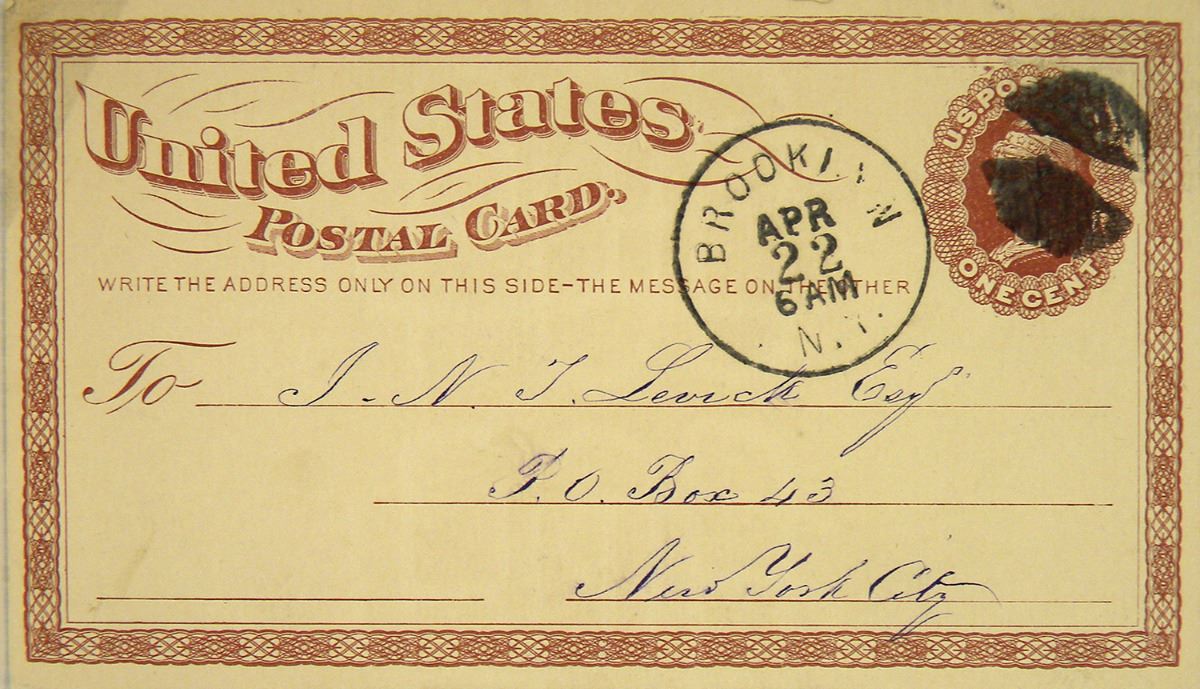 United States
POSTAL CARD.
U.S. POS
ONE CENT
BROOKLYN
APR
22
6 AM
N.Y.
WRITE THE ADDRESS ONLY ON THIS SIDE-THE MESSAGE ON THE OTHER
To J. N. T. Levick Esq
P. O. Box 43
New York City